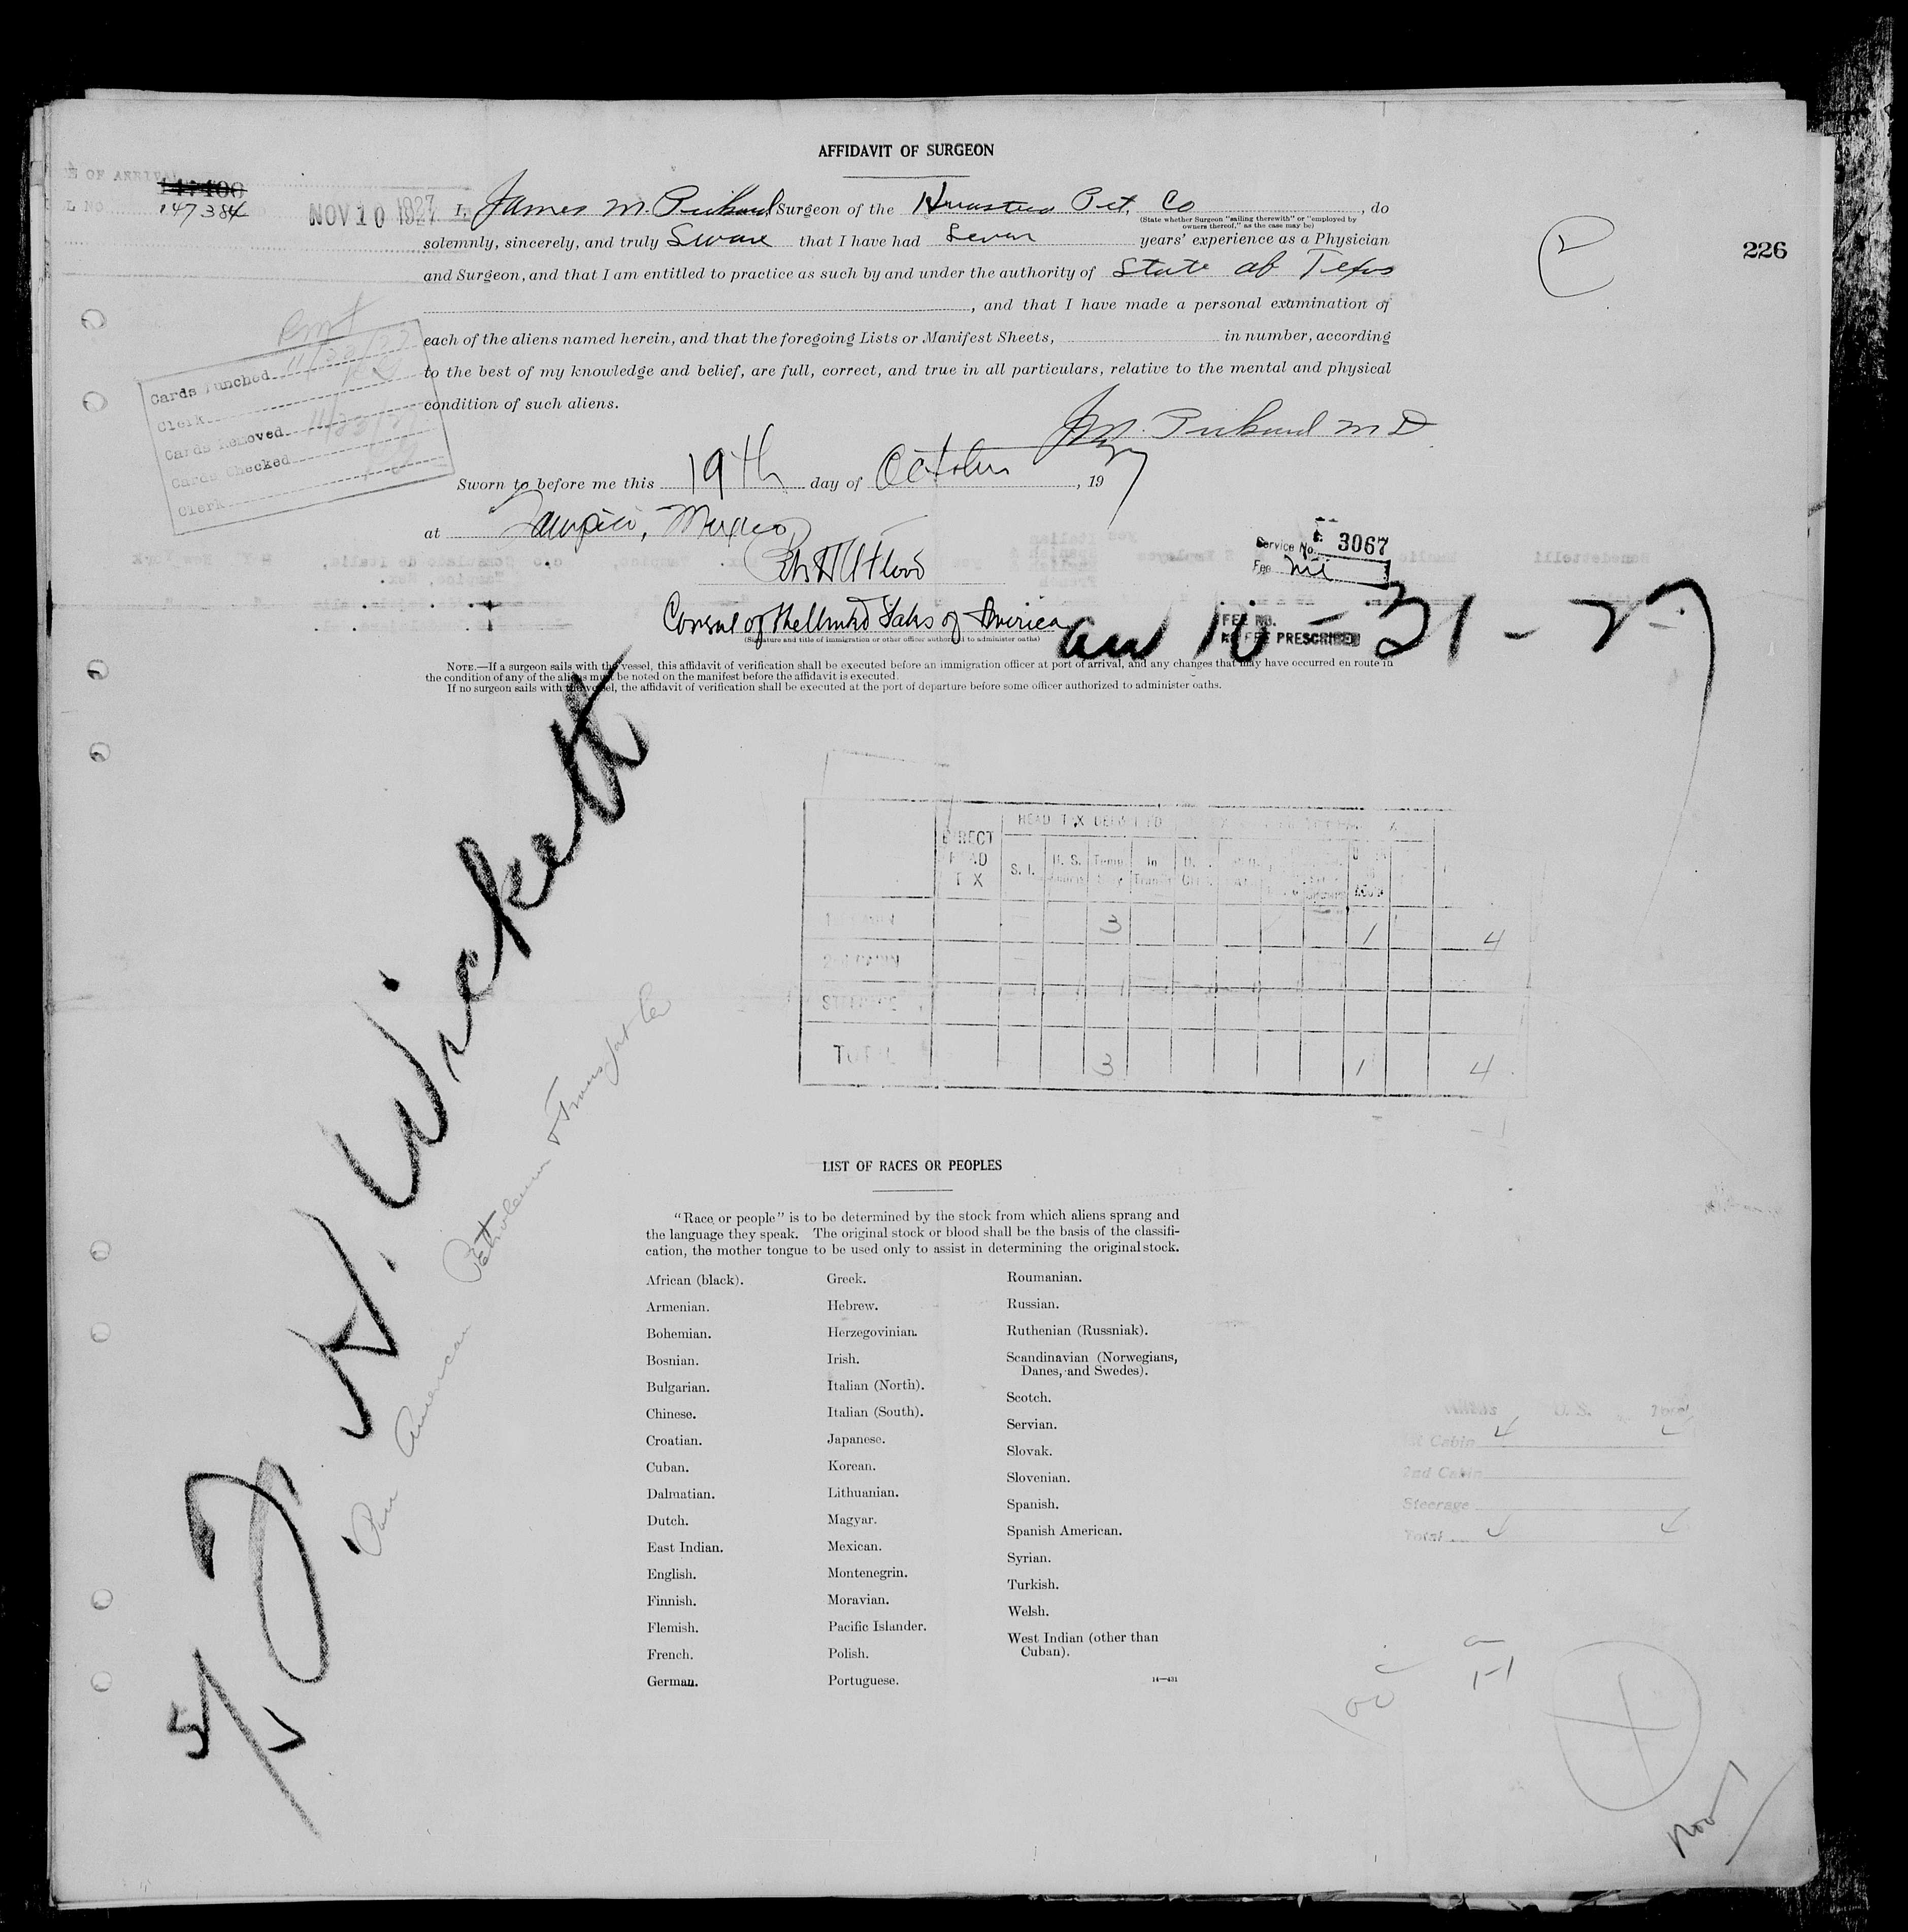 AFFIDAVIT OF SURGEON
147384
NOV 10 1927
226
I, James M. Surgeon of the Pet. Co, do
(State whether Surgeon "sailing therewith" or "employed by
owners thereof," as the case may be)
solemnly, sincerely, and truly Swear that I have had seven years' experience as a Physician
and Surgeon, and that I am entitled to practice as such by and under the authority of State of Texas
, and that I have made a personal examination of
each of the aliens named herein, and that the foregoing Lists or Manifest Sheets, in number, according
to the best of my knowledge and belief, are full, correct, and true in all particulars, relative to the mental and physical
condition of such aliens.
Cards Punched 11/23/27
Clerk
Cards Removed 11/23/27
Cards Checked
Clerk
J.M. M D
Sworn to before me this 19th day of October, 1927
at Tampico, Mexico
Service No. 3067
Fee nil
Consul of the United States of America
(Signature and title of immigration or other officer authorized to administer oaths)
FEE NO.
NO FEE PRESCRIBED
10-31-27
NOTE.—If a surgeon sails with the vessel, this affidavit of verification shall be executed before an immigration officer at port of arrival, and any changes that may have occurred en route in
the condition of any of the aliens must be noted on the manifest before the affidavit is executed.
If no surgeon sails with the vessel, the affidavit of verification shall be executed at the port of departure before some officer authorized to administer oaths.
H. Wickett
Pan American Petroleum & Transpt Co
DIRECT HEAD TAX
S. I.
3 1 4
STEERAGE
TOTAL 3 1 4
LIST OF RACES OR PEOPLES
"Race or people" is to be determined by the stock from which aliens sprang and
the language they speak. The original stock or blood shall be the basis of the classifi-
cation, the mother tongue to be used only to assist in determining the original stock.
African (black).
Armenian.
Bohemian.
Bosnian.
Bulgarian.
Chinese.
Croatian.
Cuban.
Dalmatian.
Dutch.
East Indian.
English.
Finnish.
Flemish.
French.
German.
Greek.
Hebrew.
Herzegovinian.
Irish.
Italian (North).
Italian (South).
Japanese.
Korean.
Lithuanian.
Magyar.
Mexican.
Montenegrin.
Moravian.
Pacific Islander.
Polish.
Portuguese.
Roumanian.
Russian.
Ruthenian (Russniak).
Scandinavian (Norwegians,
Danes, and Swedes).
Scotch.
Servian.
Slovak.
Slovenian.
Spanish.
Spanish American.
Syrian.
Turkish.
Welsh.
West Indian (other than
Cuban).
14—431
Aliens U. S. Total
1st Cabin 4 4
2nd Cabin
Steerage
Total 4 4
Nov